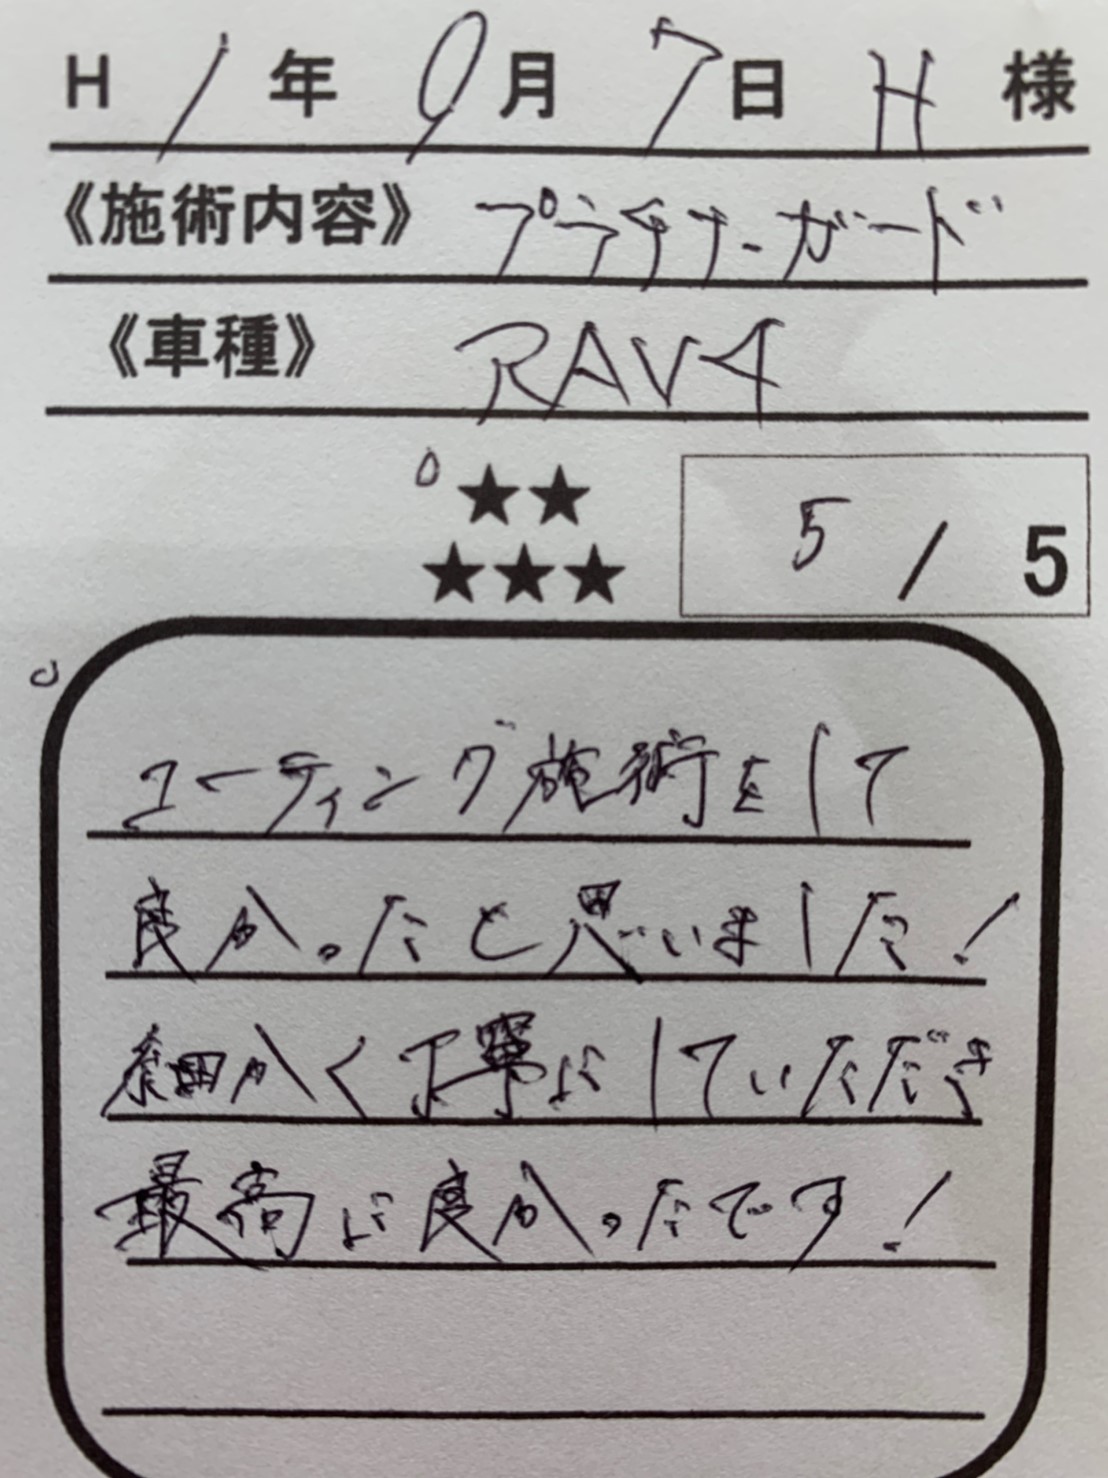 H 1年 9月 7日 H 様
《施術内容》 プラチナーガード
《車種》 RAV4
★★
★★★ 5 / 5
コーティング施術をして
良かったと思いました!
細かく丁寧にしていただき
最高に良かったです!